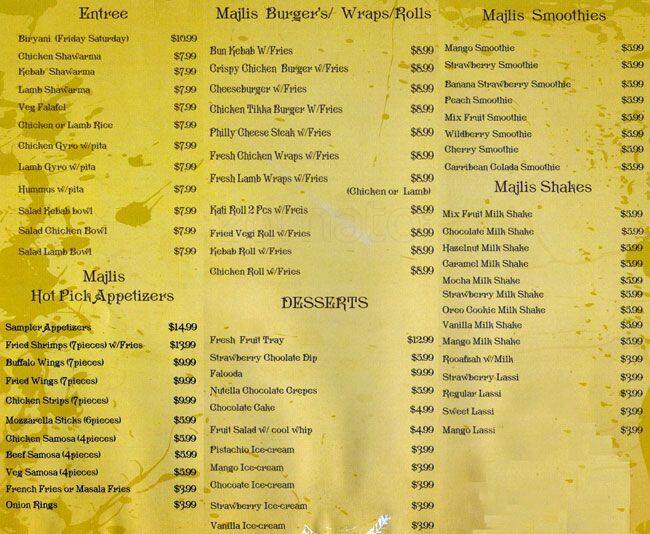 Entree
Biryani (Friday Saturday) $10.99
Chicken Shawarma $7.99
Kebab Shawarma $7.99
Lamb Shawarma $7.99
Veg Falafel $7.99
Chicken or Lamb Rice $7.99
Chicken Gyro w/pita $7.99
Lamb Gyro w/pita $7.99
Hummus w/pita $7.99
Salad Kebab bowl $7.99
Salad Chicken Bowl $7.99
Salad Lamb Bowl $7.99
Majlis
Hot Pick Appetizers
Sampler Appetizers $14.99
Fried Shrimps (7pieces) w/Fries $13.99
Buffalo Wings (7pieces) $9.99
Fried Wings (7pieces) $9.99
Chicken Strips (7pieces) $9.99
Mozzarella Sticks (6pieces) $5.99
Chicken Samosa (4pieces) $5.99
Beef Samosa (4pieces) $5.99
Veg Samosa (4pieces) $5.99
French Fries or Masala Fries $3.99
Onion Rings $3.99
Majlis Burger's/ Wraps/Rolls
Bun Kebab W/Fries $8.99
Crispy Chicken Burger w/Fries $8.99
Cheeseburger w/Fries $8.99
Chicken Tikka Burger W/Fries $8.99
Philly Cheese Steak w/Fries $8.99
Fresh Chicken Wraps w/Fries $8.99
Fresh Lamb Wraps w/Fries $8.99
(Chicken or Lamb)
Kati Roll 2 Pcs w/Freis $8.99
Fried Vegi Roll w/Fries $8.99
Kebab Roll w/Fries $8.99
Chicken Roll w/Fries $8.99
DESSERTS
Fresh Fruit Tray $12.99
Strawberry Choolate Dip $5.99
Falooda $9.99
Nutella Chocolate Crepes $5.99
Chocolate Cake $4.99
Fruit Salad w/ cool whip $4.99
Pistachio Ice-cream $3.99
Mango Ice-cream $3.99
Chocoate Ice-cream $3.99
Strawberry Ice-cream $3.99
Vanilla Ice-cream $3.99
Majlis Smoothies
Mango Smoothie $5.99
Strawberry Smoothie $5.99
Banana Strawberry Smoothie $5.99
Peach Smoothie $5.99
Mix Fruit Smoothie $5.99
Wildberry Smoothie $5.99
Cherry Smoothie $5.99
Carribean Colada Smoothie $5.99
Majlis Shakes
Mix Fruit Milk Shake $5.99
Chocolate Milk Shake $5.99
Hazelnut Milk Shake $5.99
Caramel Milk Shake $5.99
Mocha Milk Shake $5.99
Strawberry Milk Shake $5.99
Oreo Cookie Milk Shake $5.99
Vanilla Milk Shake $5.99
Mango Milk Shake $5.99
Rooafzah w/Milk $3.99
Strawberry Lassi $3.99
Regular Lassi $3.99
Sweet Lassi $3.99
Mango Lassi $3.99